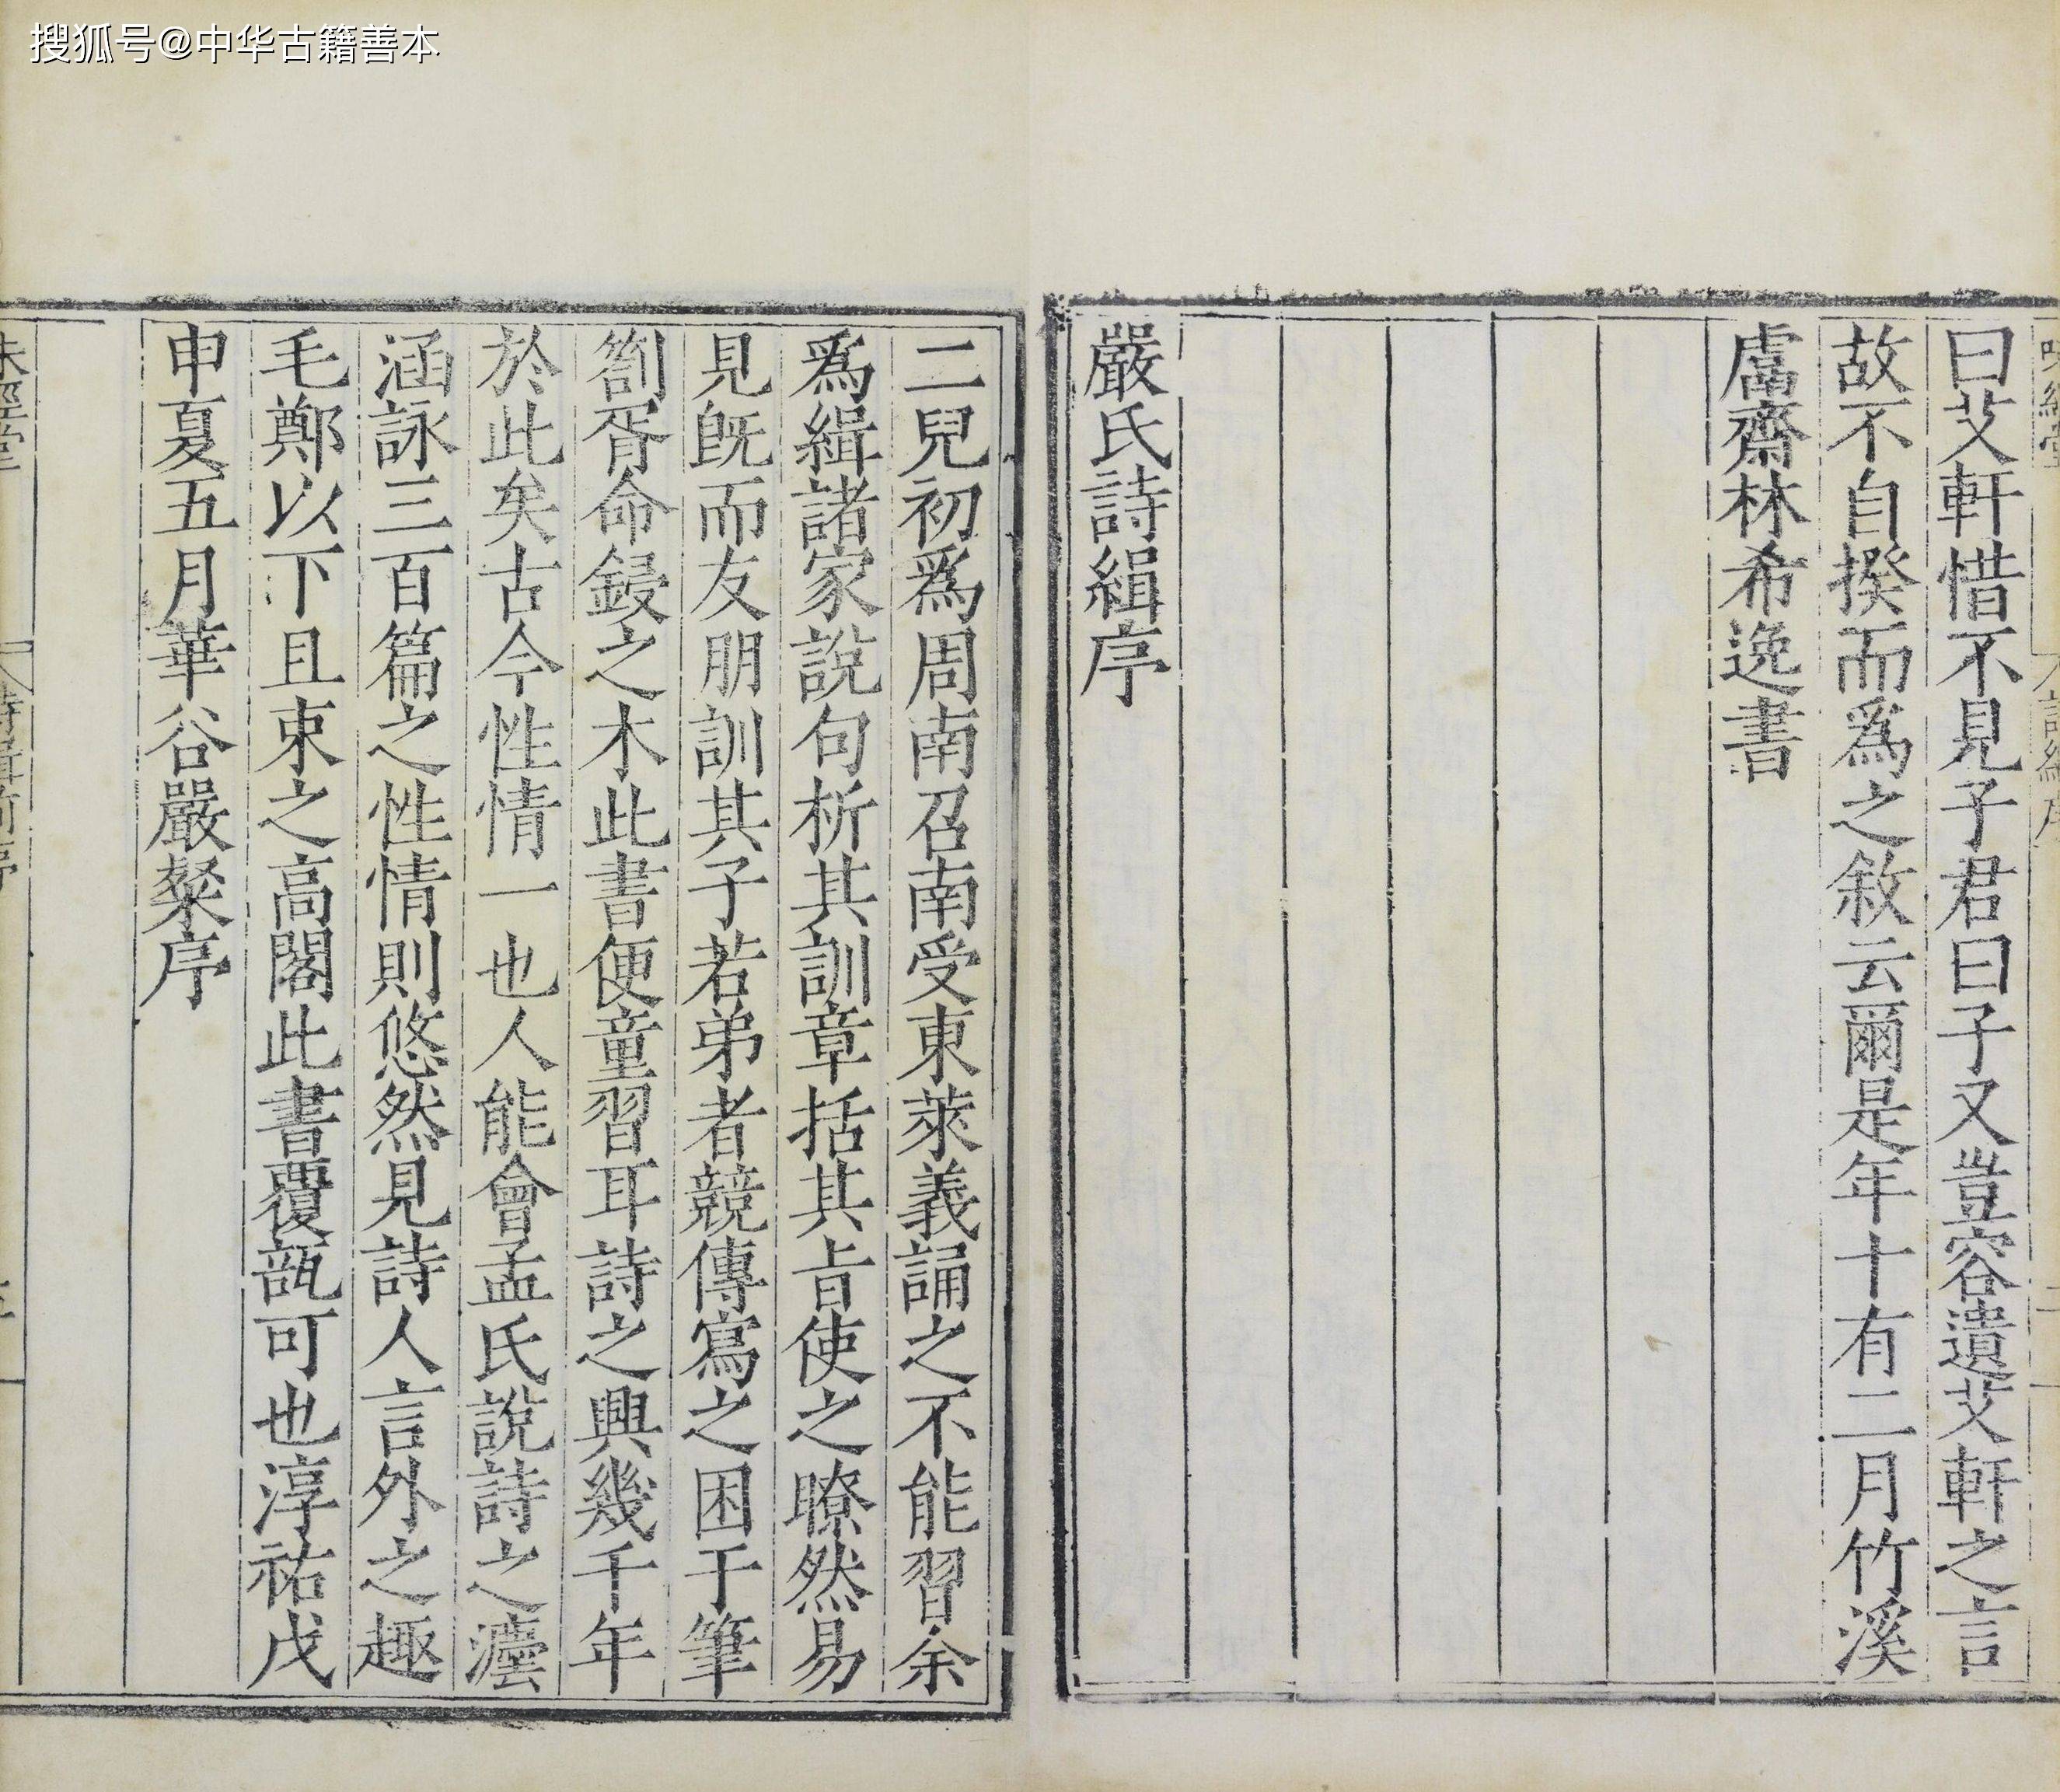 搜狐号@中华古籍善本
曰艾軒惜不見子君曰子又豈容遺艾軒之言
故不自揆而爲之敘云爾是年十有二月竹溪
鬳齋林希逸書
嚴氏詩緝序
二兒初爲周南召南受東萊義誦之不能習余
爲緝諸家說句析其訓章括其旨使之瞭然易
見旣而友朋訓其子若弟者競傳寫之困于筆
劄胥命鋟之木此書便童習耳詩之興幾千年
於此矣古今性情一也人能會孟氏說詩之灋
涵詠三百篇之性情則悠然見詩人言外之趣
毛鄭以下且束之高閣此書覆瓿可也淳祐戊
申夏五月華谷嚴粲序